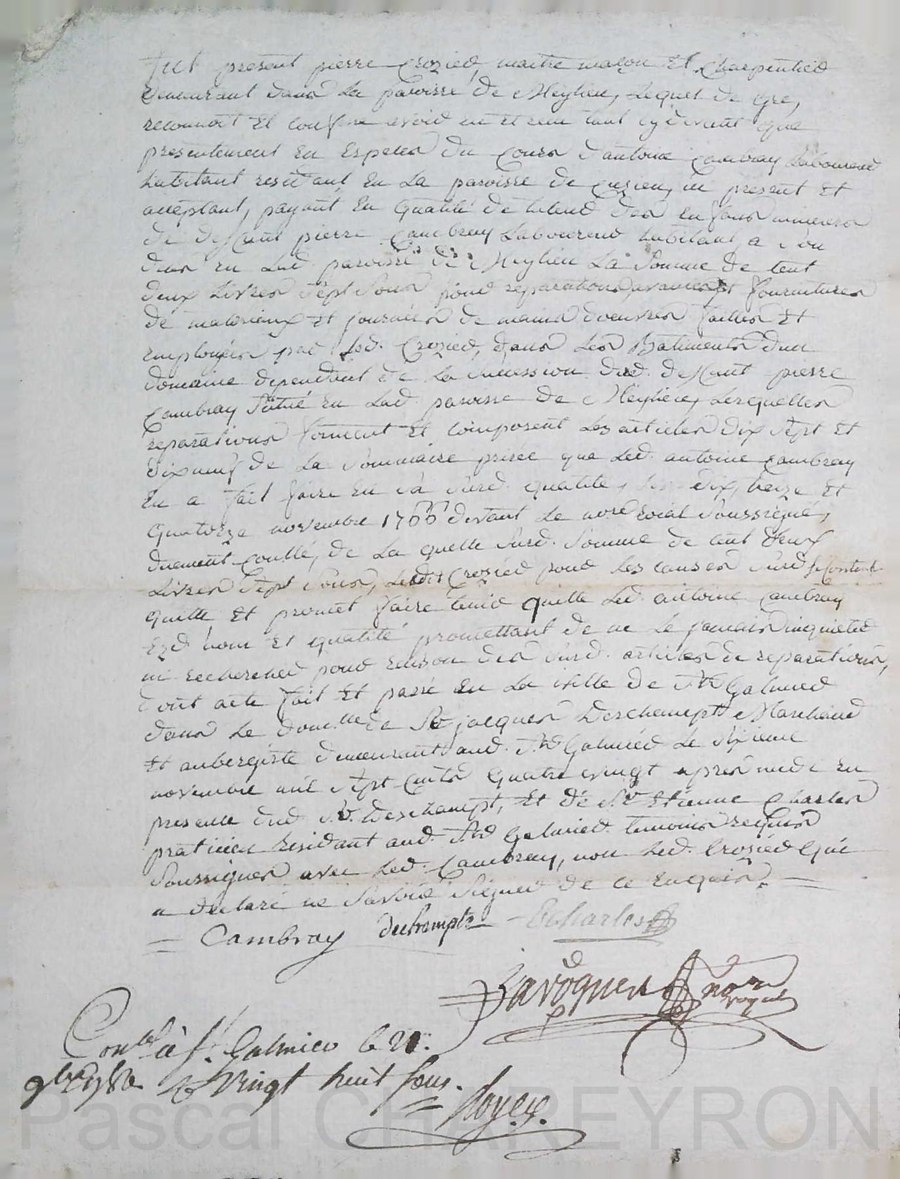 fut présent pierre Crozied maitre maçon Et Charpentied
demeurant dans La paroisse de Meylieu, Lequel de gré,
reconnoit Et confesse avoid eu et reçu tant cy devant que
presentement En Especes du Cours d'antoine Cambray Laboureud
habitant residant En La paroisse de Cuzieu, ici present Et
acceptant, payant En qualité de tuteud des Enfans mineurs
de deffunt pierre Cambray Laboureud habitant a son
En Lad. paroisse de Meylieu La Somme de cent
deux Livres Sept Sous poud reparations, avances Et fournitures
de materieux Et journées de mains d'oeuvres faittes Et
Employées pad Led. Crozied, dans Les Batiments d'un
domaine dependant de La Succession dud. deffunt pierre
Cambray Situé En Lad. paroisse de Meylieu, Lesquelles
reparations forment Et composent Les articles dix Sept Et
dix neuf de La Sommaire prisée que Led. antoine Cambray
En a fait faire En Sa Susd. qualité, dix, treize Et
quatorze novembre devant Le no.re royal Soussigné,
duement Conllé, de La quelle Susd. Somme de cent deux
Livres Sept Sous, Ledit Crozied poud Les causes Susd. Se Contente
quitte Et promet faire tenid quitte Led. antoine Cambray
Ezd. nom Et qualité promettant de ne Le jamais inquieted
ni recherched poud raison des Susd. articles de reparations,
dont acte fait Et passé En La ville de St. Galmied
dans Le domicille de Sr. jacques Deschampt Marchand
Et aubergiste demeurant aud. St. Galmied Le
novembre mil Sept Cents quatre vingt après midy En
presence dud. Sr. Deschampt, Et de Sr. Etienne Charles
praticien Residant aud. St. Galmied. temoins requis
Soussignés avec Led. Cambray, non Led. Crozied qui
a declaré ne Savoid Signed de ce Enquis.
Cambray dechampts Echarles
no.re royal
Con.lé à St. Galmier le 21
9bre 1780 R vingt huit sous.
Royer
Pascal CHAREYRON